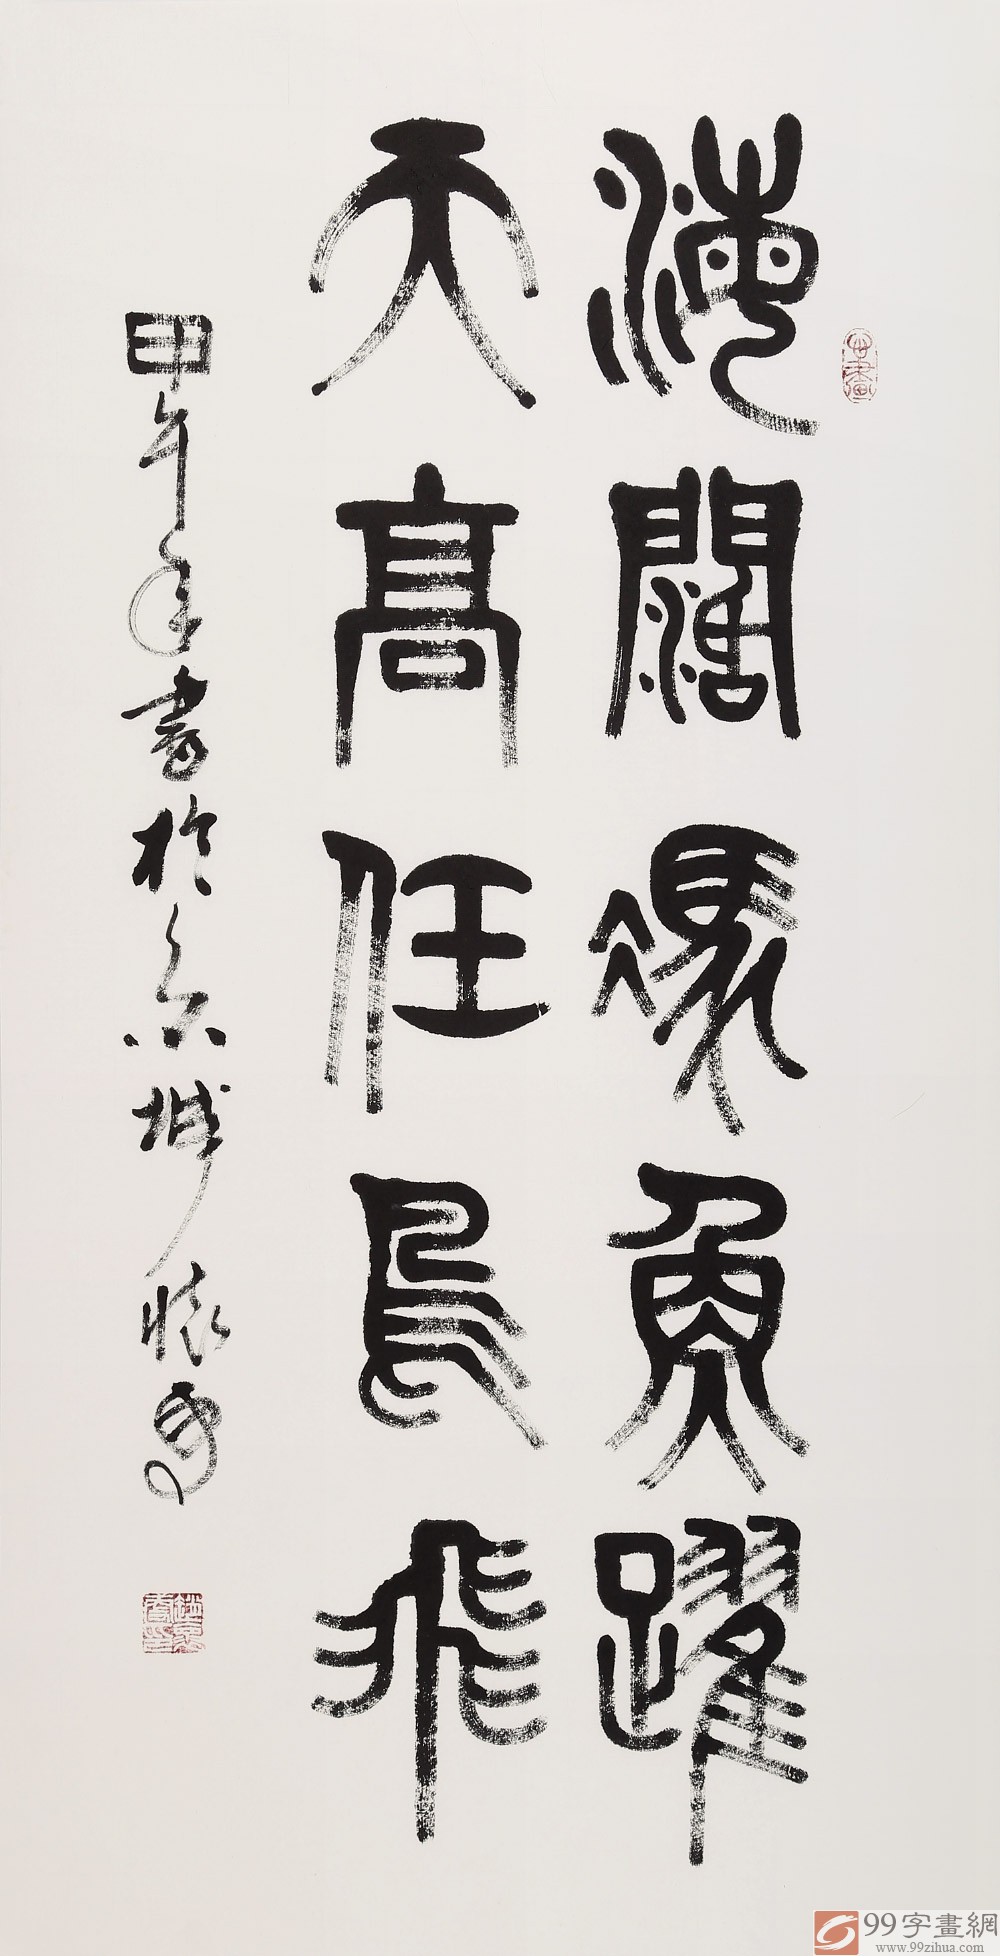 海闊馮魚躍
天高任鳥飛
甲午年書於京城懷勇
99字畫網
www.99zihua.com